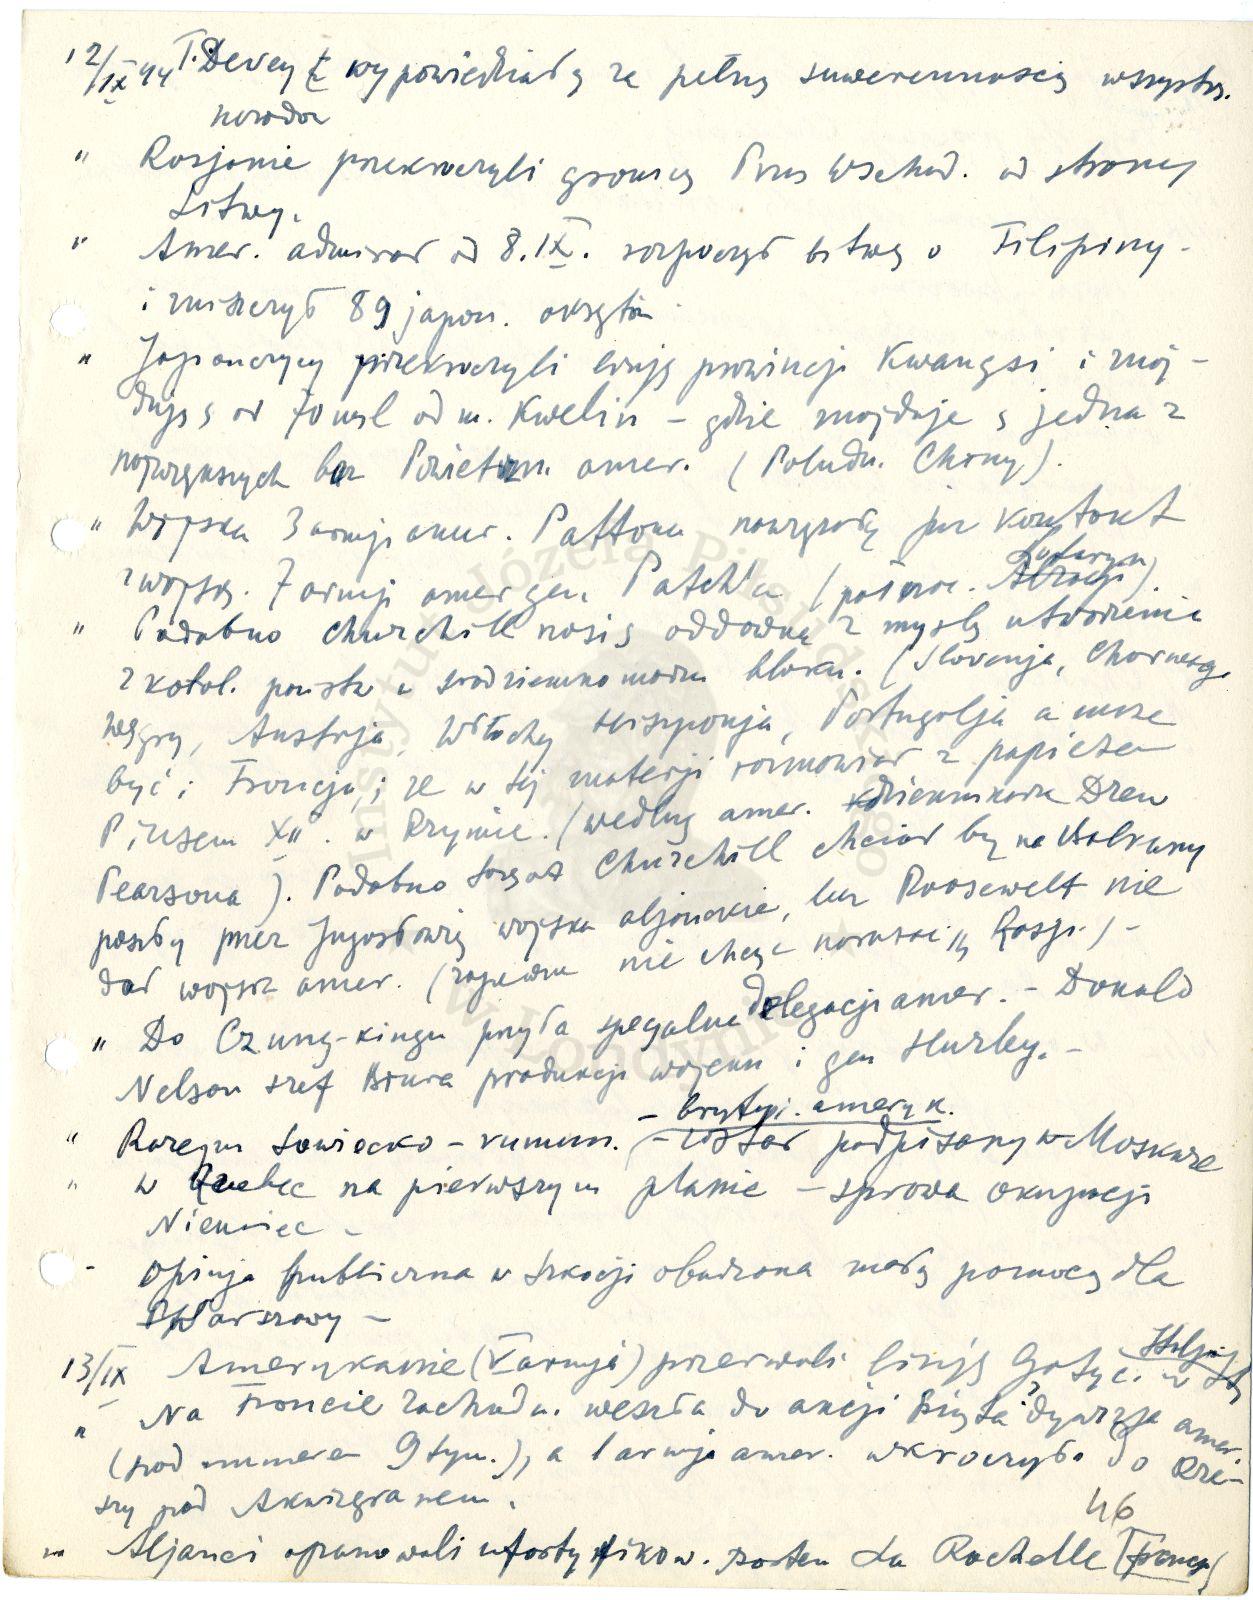 12/IX 44 T. Dewey wypowiedział za pełną suwerennością wszystk.
narodów
" Rosjanie przekroczyli granicę Prus Wschod. od strony
Litwy.
" Amer. admirał od 8.IX. rozpoczął bitwę o Filipiny -
i zniszczył 89 japon. okrętów
" Japończycy przekroczyli linję prowincji Kwangsi i znaj-
dują s od 70 mil od m. Kwelin - gdzie znajduje s jedna z
największych baz Powietrzn. amer. (Południ. Chiny).
" Wojska 3 armji amer. Pattona nawiązały już kontakt
z wojsk. 7 armji amer gen. Patch'a (północ. Lotaryn
Alzacji).
" Podobno Churchill nosi s oddawna z myślą utworzenia
z katol. państw śródziemnomorsk bloku. (Slovenja, Chorwacj,
Węgry, Austrja, Włochy Hiszponja, Portugalja a może
być i Francja, i że w tej materji rozmawiał z papieżem
Piusem XII. w Rzymie. (według amer. dziennikarza Drew
Pearsona). Podobno Churchill chciał by na Bałkany
poszły przez Jugosławię wojska aljanckie, lecz Roosewelt nie
dał wojsk amer. (zapewne nie chcąc narażać Rosji.) -
" Do Czung-kingu przyszła specjalna delegacja amer. - Donald
Nelson szef Biura produkcji wojenn i gen Hurley. -
- brytyj. ameryk.
" Rozejm Sowiecko - rumuń. - został podpisany w Moskwie
" w Quebec na pierwszym planie - sprawa okupacji
Niemiec -
- Opinja publiczna w Szkocji oburzona małą pomocą dla
Warszawy -
13/IX Amerykanie (V armja) przerwali linję Gotyc. w
" Na Froncie zachodn. weszła do akcji Piąta dywizja amer.
(pod numerem 9 tym.), a 1 armja amer. wkroczyła do Rze-
szy pod Akwizgranem.
46
" Aljanci opanowali ufortyfikow. portem La Rochelle (Francj)